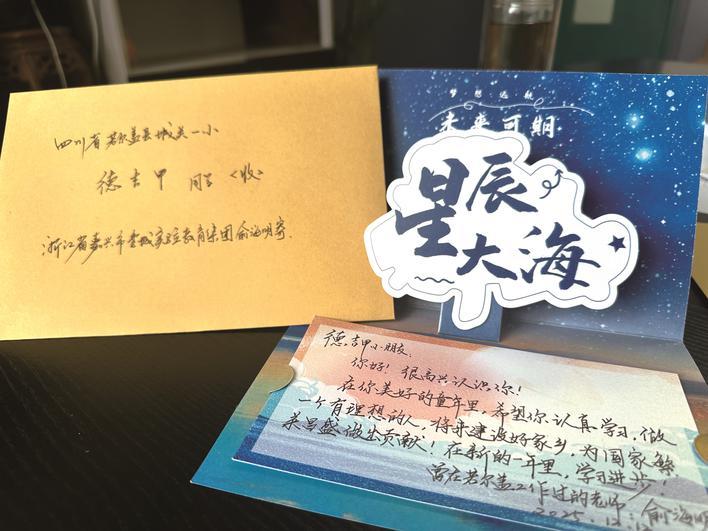 四川省若尔盖县城关一小
德吉甲 同学 <收>
浙江省嘉兴市秀城实验教育集团俞海明寄.
梦想远航
未来可期
星辰
大海
德吉甲小朋友:
你好！很高兴认识你！
在你美好的童年里,希望你认真学习,做
一个有理想的人,将来建设好家乡,为国家繁
荣昌盛做出贡献！在新的一年里,学习进步！
曾在若尔盖工作过的老师:
2025.12. 俞海明